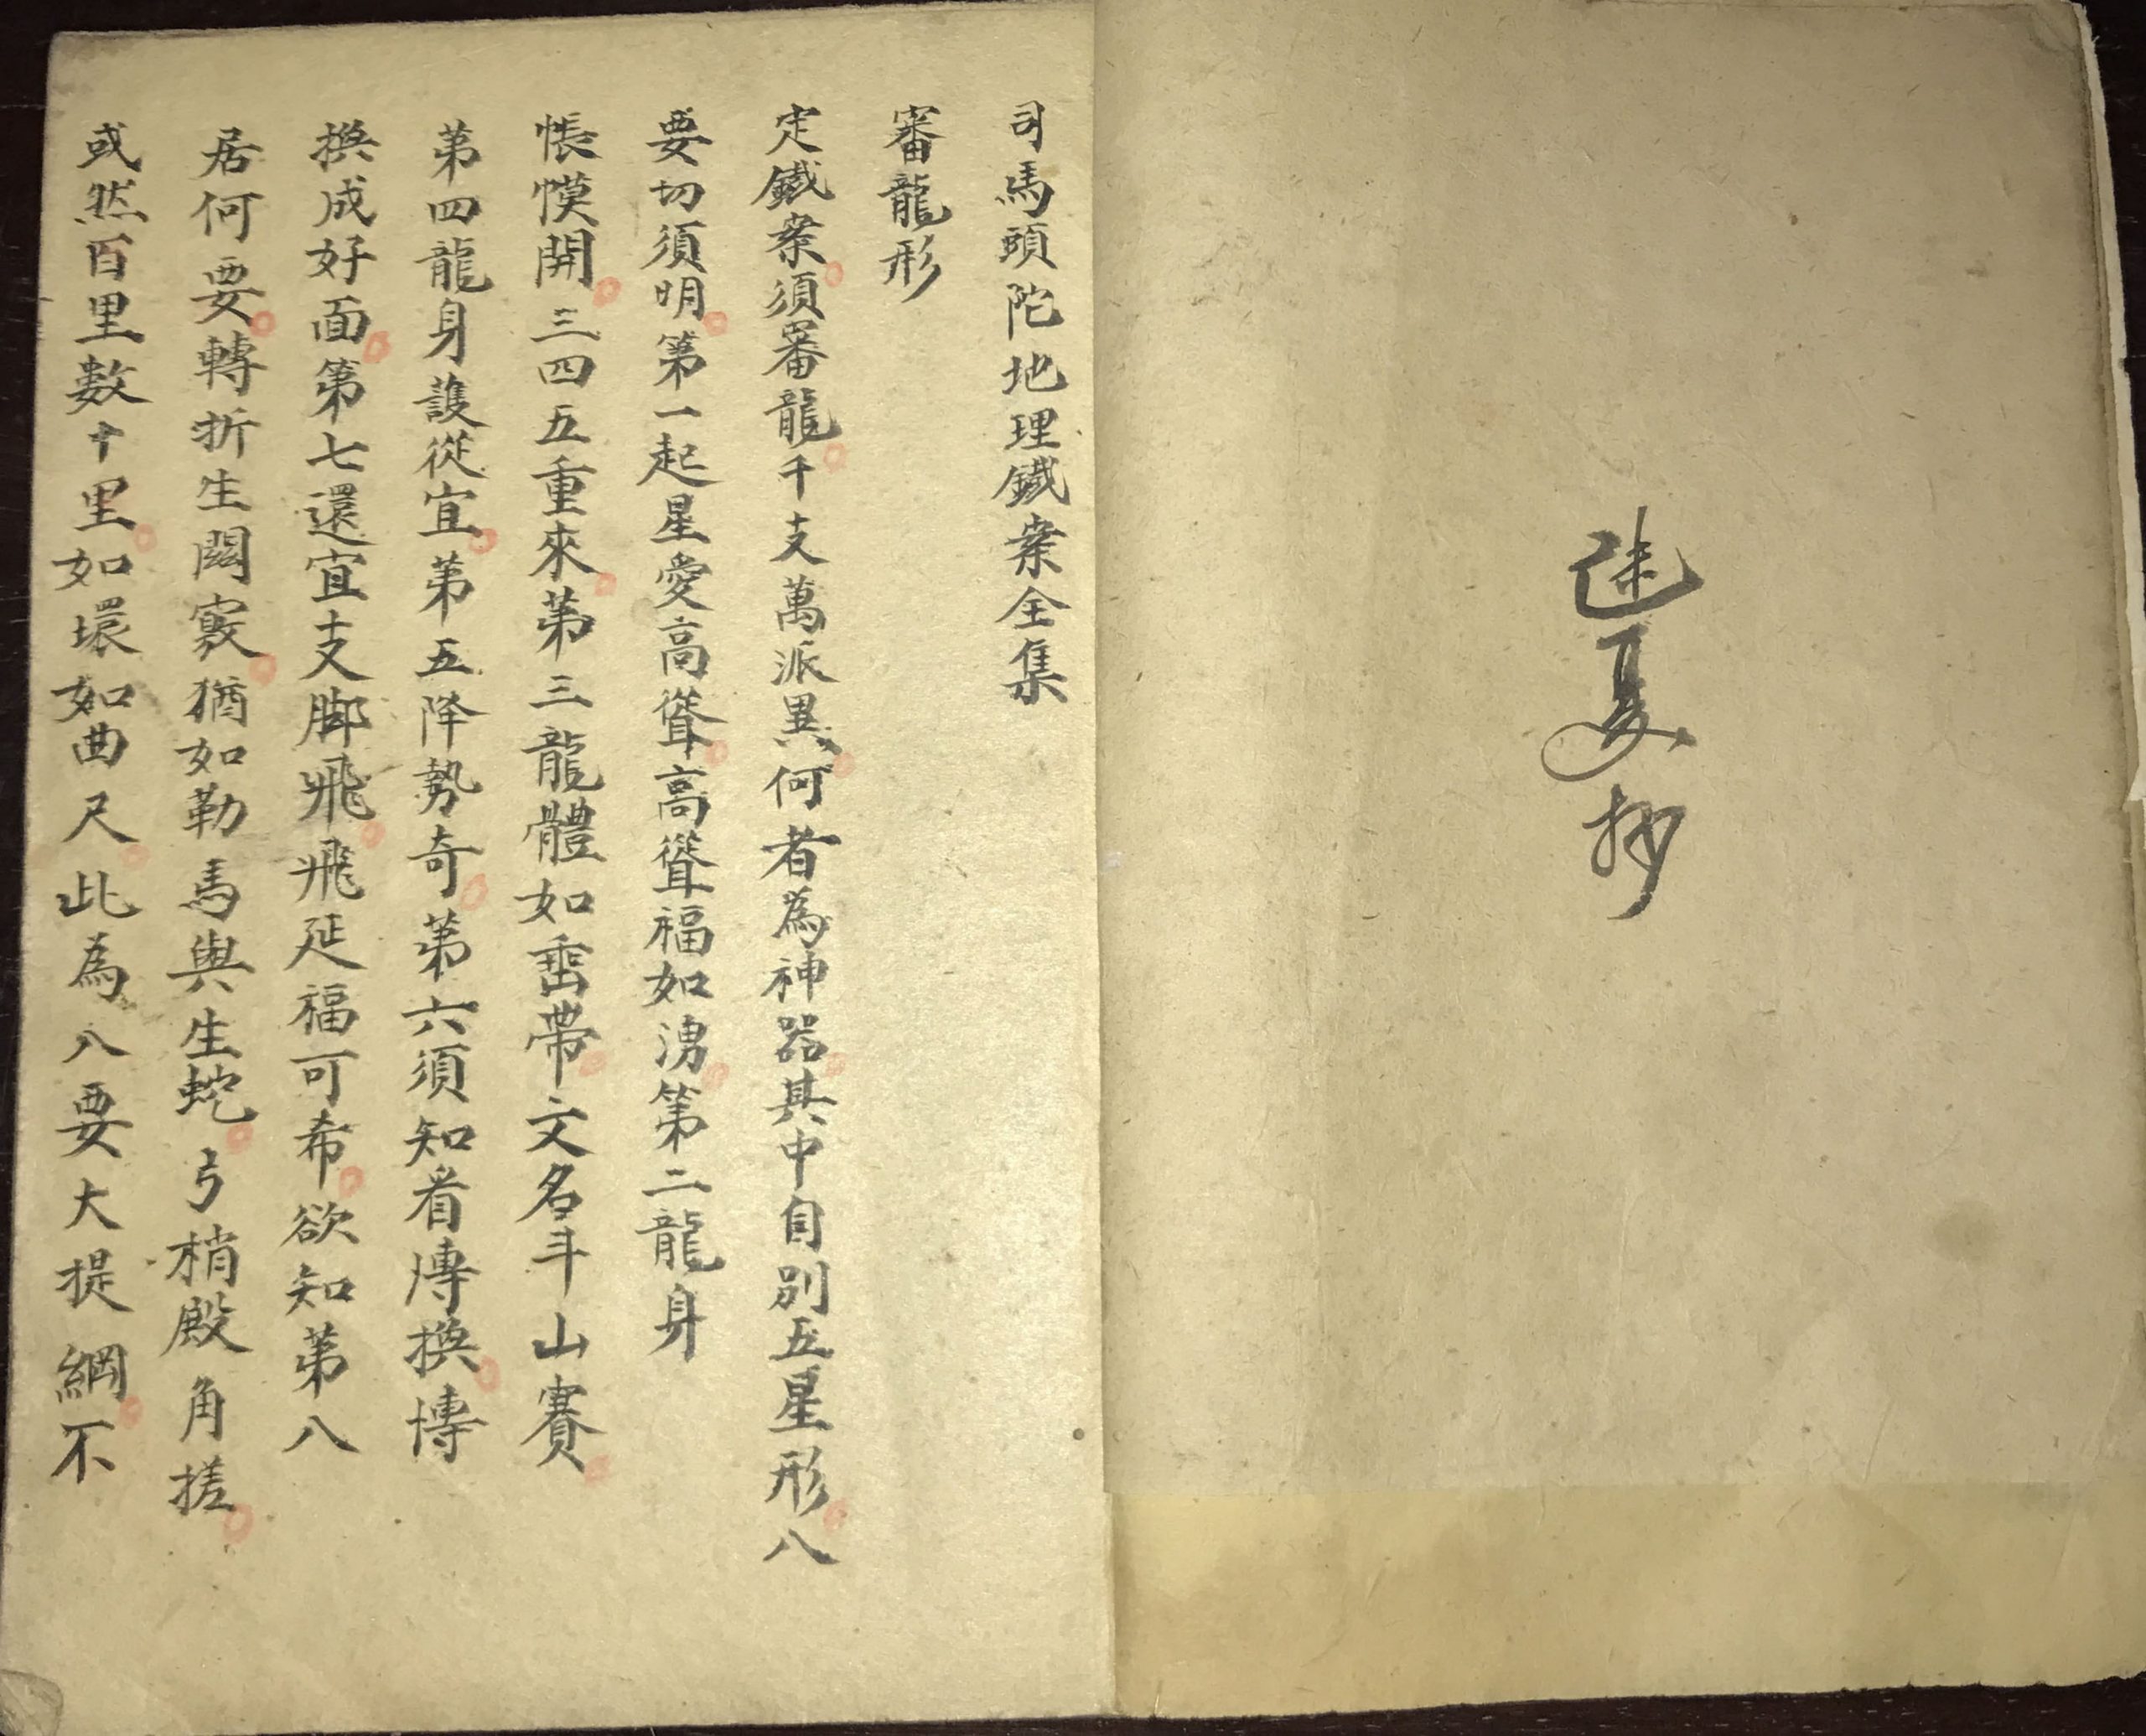 夏抄
司馬頭陀地理鐵案全集
審龍形
定鐵案須審龍千支萬派異何者為神器其中自別五星形八
要切須明第一起星愛高聳高聳福如湧第二龍身
帳幙開三四五重來第三龍體如畨帶文名斗山賽
第四龍身護從宜第五降勢奇第六須知看博換博
換成好面第七還宜支脚飛飛延福可希欲知第八
居何要轉折生闊窽猶如勒馬與生蛇弓梢殿角搓
或然百里數十里如環如曲尺此為八要大提綱不